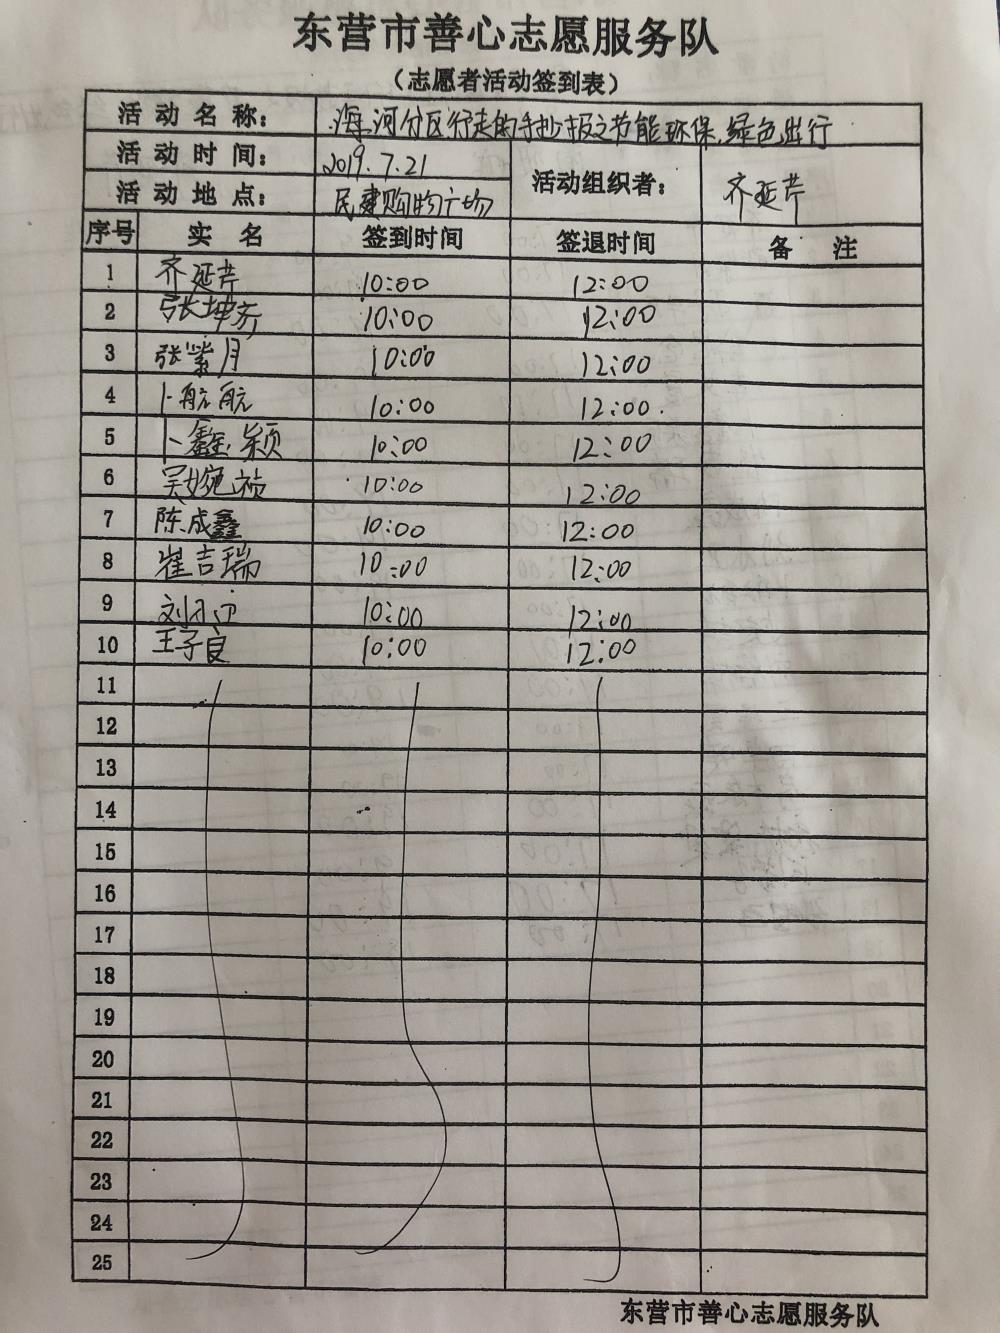 东营市善心志愿服务队
（志愿者活动签到表）
活动名称： 海河分区行走的手抄报之节能环保,绿色出行
活动时间： 2019.7.21 活动组织者： 齐延芹
活动地点： 民建购物广场
序号 实名 签到时间 签退时间 备注
1 齐延芹 10:00 12:00
2 张坤齐 10:00 12:00
3 张紫月 10:00 12:00
4 卜航航 10:00 12:00.
5 卜鑫颖 10:00 12:00
6 吴婉祯 10:00 12:00
7 陈成鑫 10:00 12:00
8 崔吉瑞 10:00 12:00
9 刘 10:00 12:00
10 王子良 10:00 12:00
11
12
13
14
15
16
17
18
19
20
21
22
23
24
25
东营市善心志愿服务队